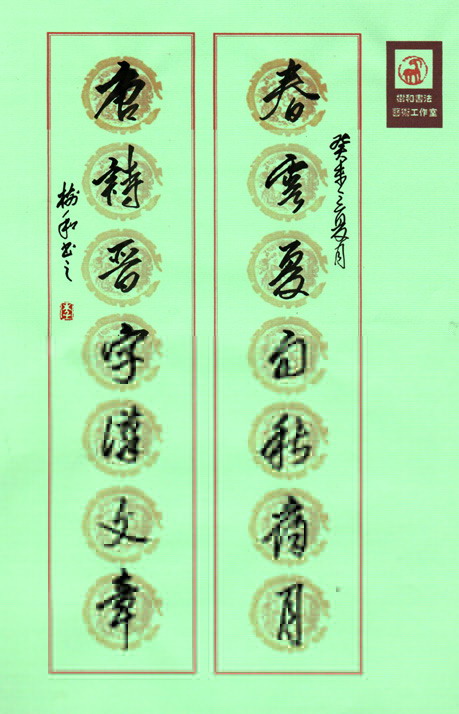 樹和書法
藝術工作室
癸未之夏月
春雲夏雨秋夜月
唐詩晋字漢文章
樹和書之